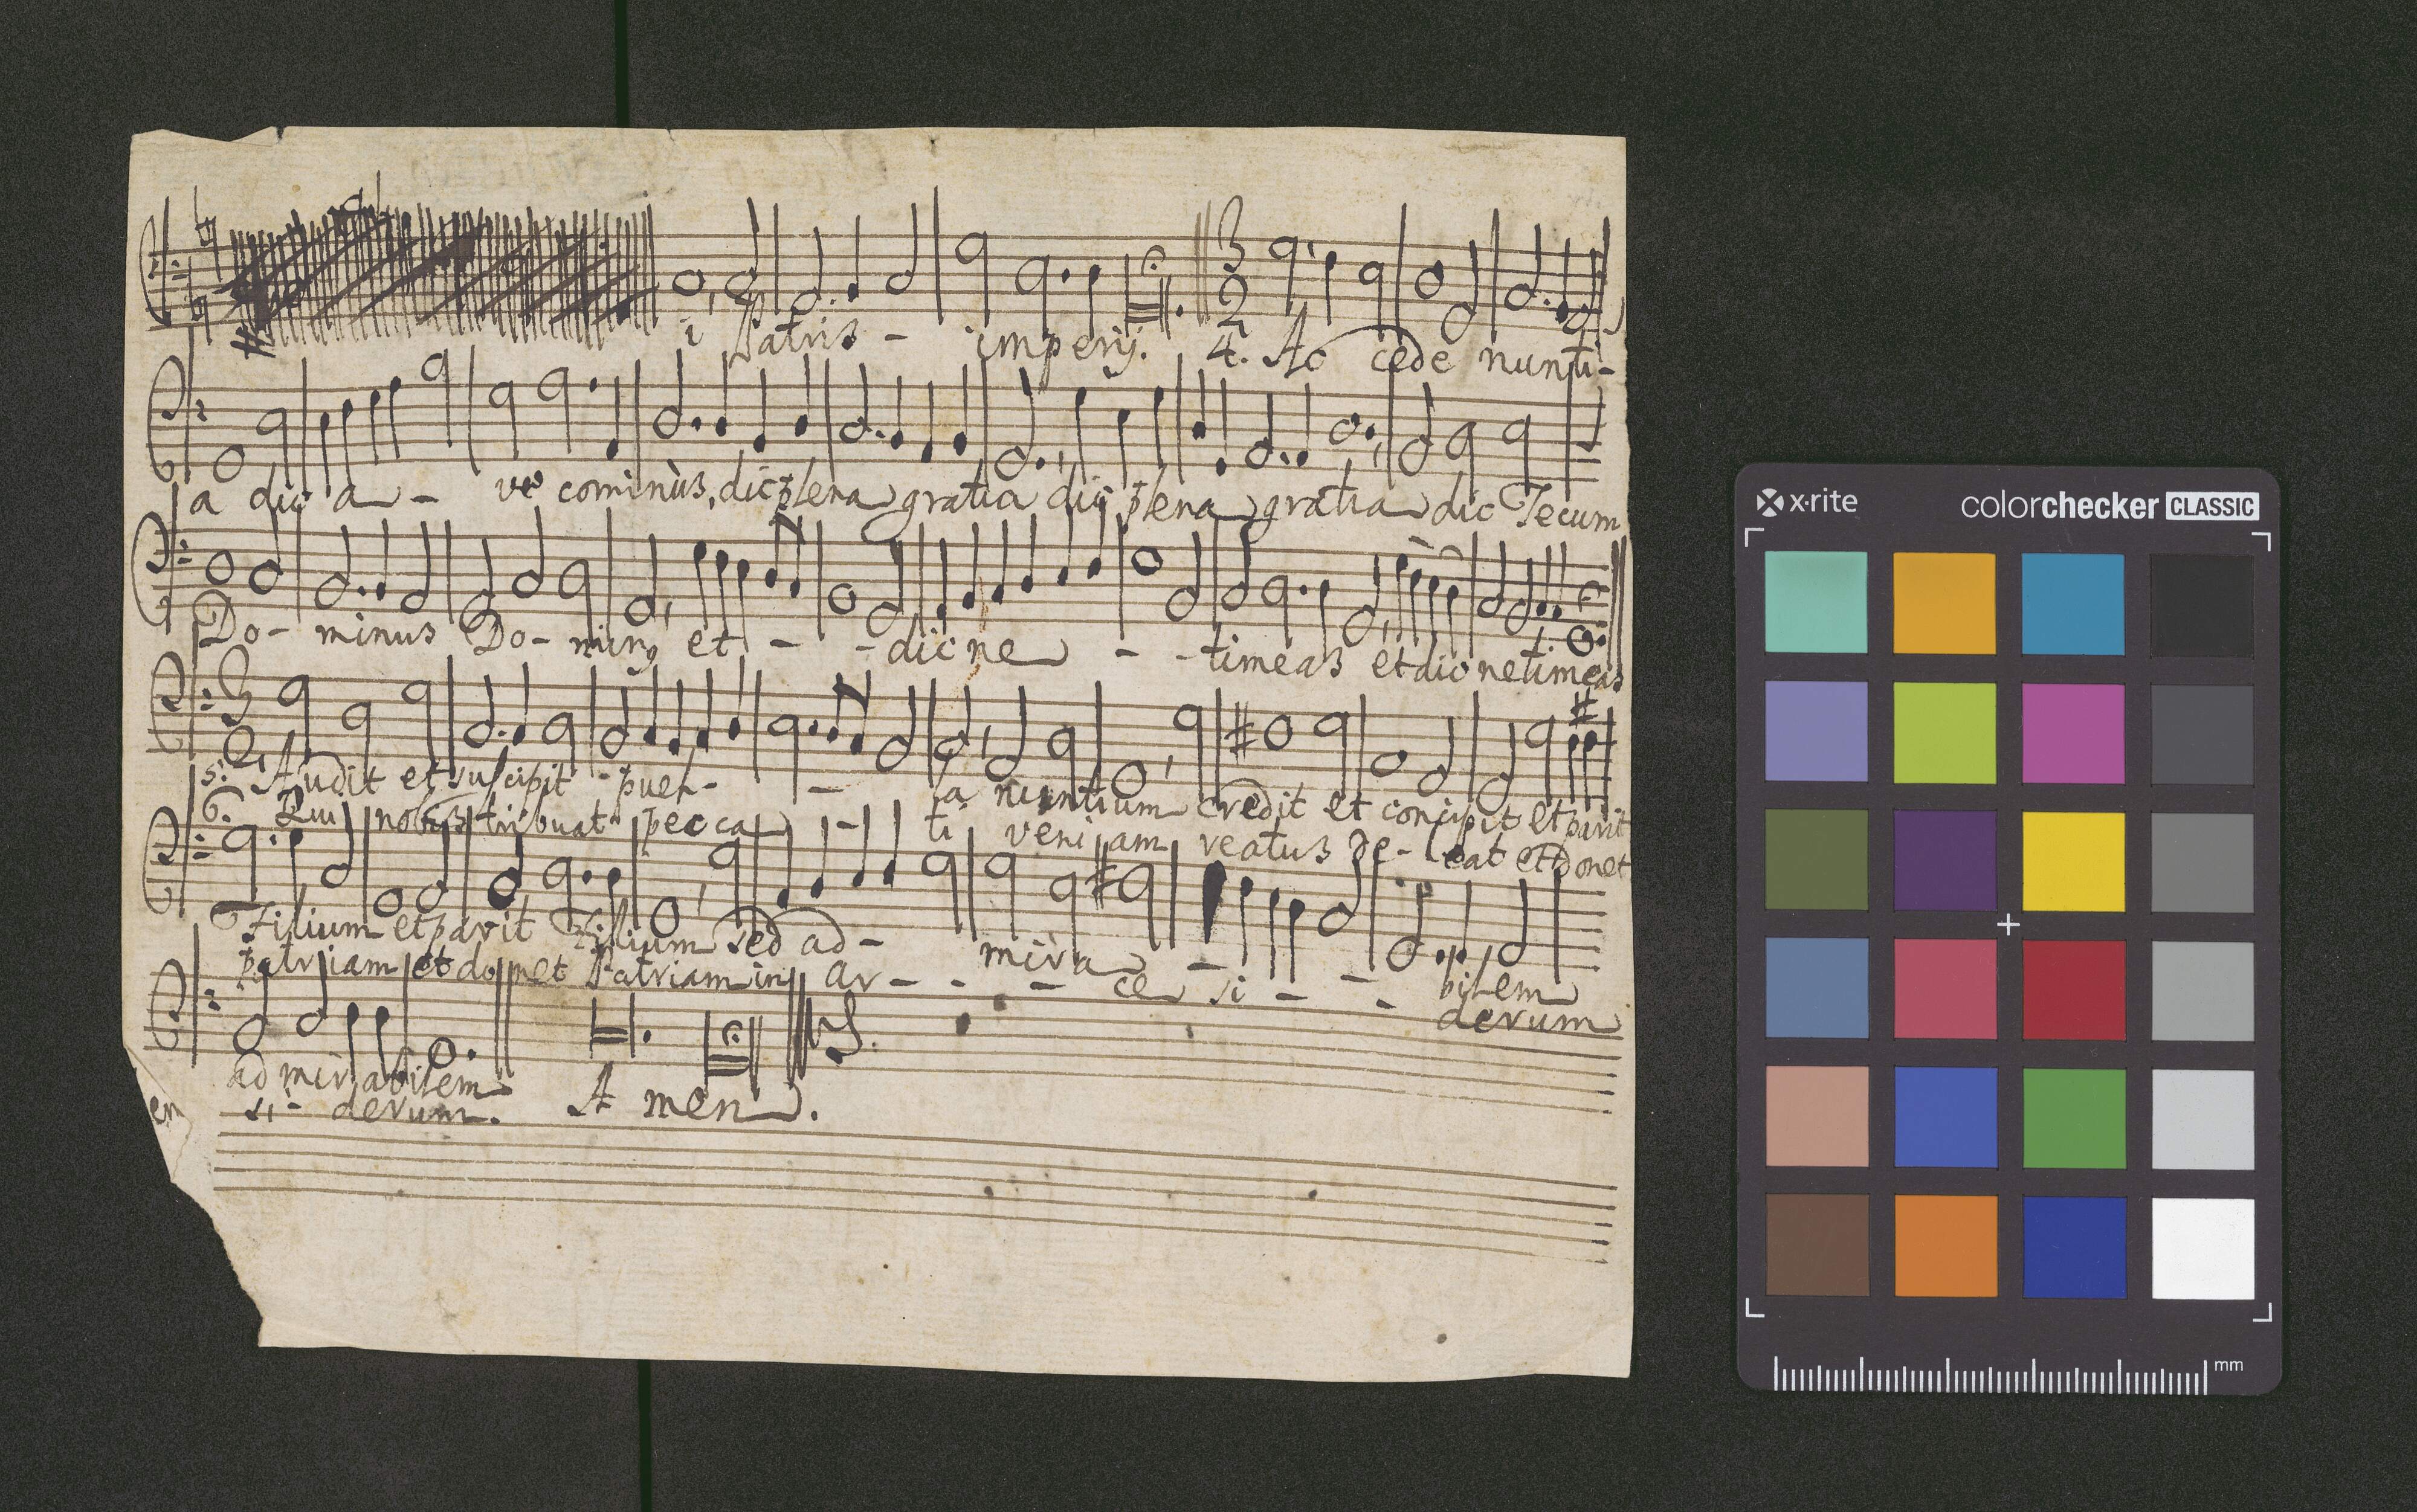 i Patris - imperij. 4. Ac cede nunti-
a dic a - ve cominùs, dic plena gratia dic plena gratia dic Tecum
Do- minus Do- min9 et - - dic ne - - timeas et dic ne timeas
5. Audit et suscipit - puel- - a nuntium credit et concipit et parit
6. Qui nobis tribuat pecca - ti veni am reatus de- leat et donet
Filium et parit Filium sed ad- mira - - bilem
patriam et donet Patriam in ar - - - ce si - - derum
ad mirabilem
en si- derum. A men.
x·rite colorchecker CLASSIC
mm